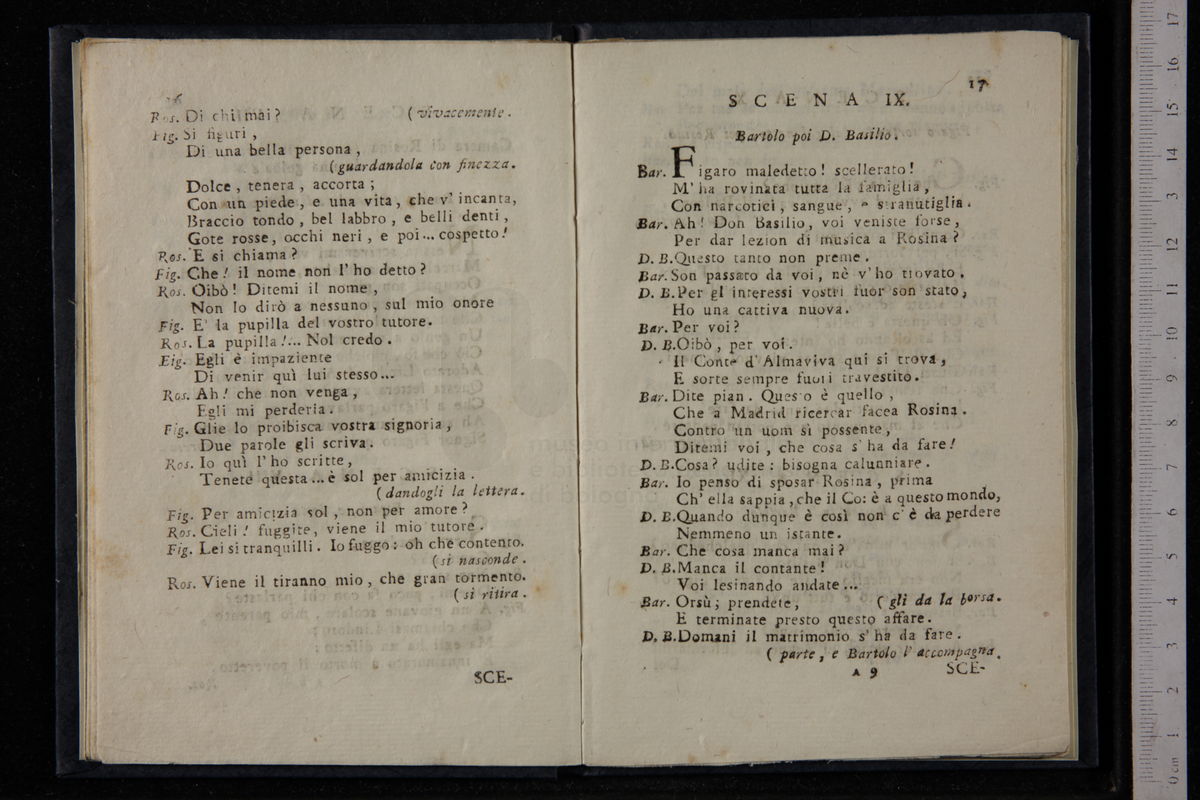 16
Ros. Di chi mai? (vivacemente.
Fig. Si figuri,
Di una bella persona,
(guardandola con finezza.
Dolce, tenera, accorta;
Con un piede, e una vita, che v'incanta,
Braccio tondo, bel labbro, e belli denti,
Gote rosse, occhi neri, e poi... cospetto!
Ros. E si chiama?
Fig. Che! il nome non l'ho detto?
Ros. Oibò! Ditemi il nome,
Non lo dirò a nessuno, sul mio onore
Fig. E' la pupilla del vostro tutore.
Ros. La pupilla!... Nol credo.
Eig. Egli è impaziente
Di venir quì lui stesso...
Ros. Ah! che non venga,
Egli mi perderia.
Fig. Glie lo proibisca vostra signoria,
Due parole gli scriva.
Ros. Io quì l'ho scritte,
Tenete questa... è sol per amicizia.
(dandogli la lettera.
Fig. Per amicizia sol, non per amore?
Ros. Cieli! fuggite, viene il mio tutore.
Fig. Lei si tranquilli. Io fuggo: oh che contento.
(si nasconde.
Ros. Viene il tiranno mio, che gran tormento.
(si ritira.
SCE-
17
SCENA IX.
Bartolo poi D. Basilio.
Bar. Figaro maledetto! scellerato!
M'ha rovinata tutta la famiglia,
Con narcotici, sangue, e stranutiglia.
Bar. Ah! Don Basilio, voi veniste forse,
Per dar lezion di musica a Rosina?
D. B. Questo tanto non preme.
Bar. Son passato da voi, nè v'ho trovato.
D. B. Per gl'interessi vostri fuor son stato,
Ho una cattiva nuova.
Bar. Per voi?
D. B. Oibò, per voi.
Il Conte d'Almaviva qui si trova,
E sorte sempre fuori travestito.
Bar. Dite pian. Questo è quello,
Che a Madrid ricercar facea Rosina.
Contro un uom sì possente,
Ditemi voi, che cosa s'ha da fare!
D. B. Cosa? udite: bisogna calunniare.
Bar. Io penso di sposar Rosina, prima
Ch'ella sappia, che il Co: è a questo mondo,
D. B. Quando dunque è così non c'è da perdere
Nemmeno un istante.
Bar. Che cosa manca mai?
D. B. Manca il contante!
Voi lesinando andate...
Bar. Orsù; prendete, (gli da la borsa.
E terminate presto questo affare.
D. B. Domani il matrimonio s'ha da fare.
(parte, e Bartolo l'accompagna.
A 9 SCE-